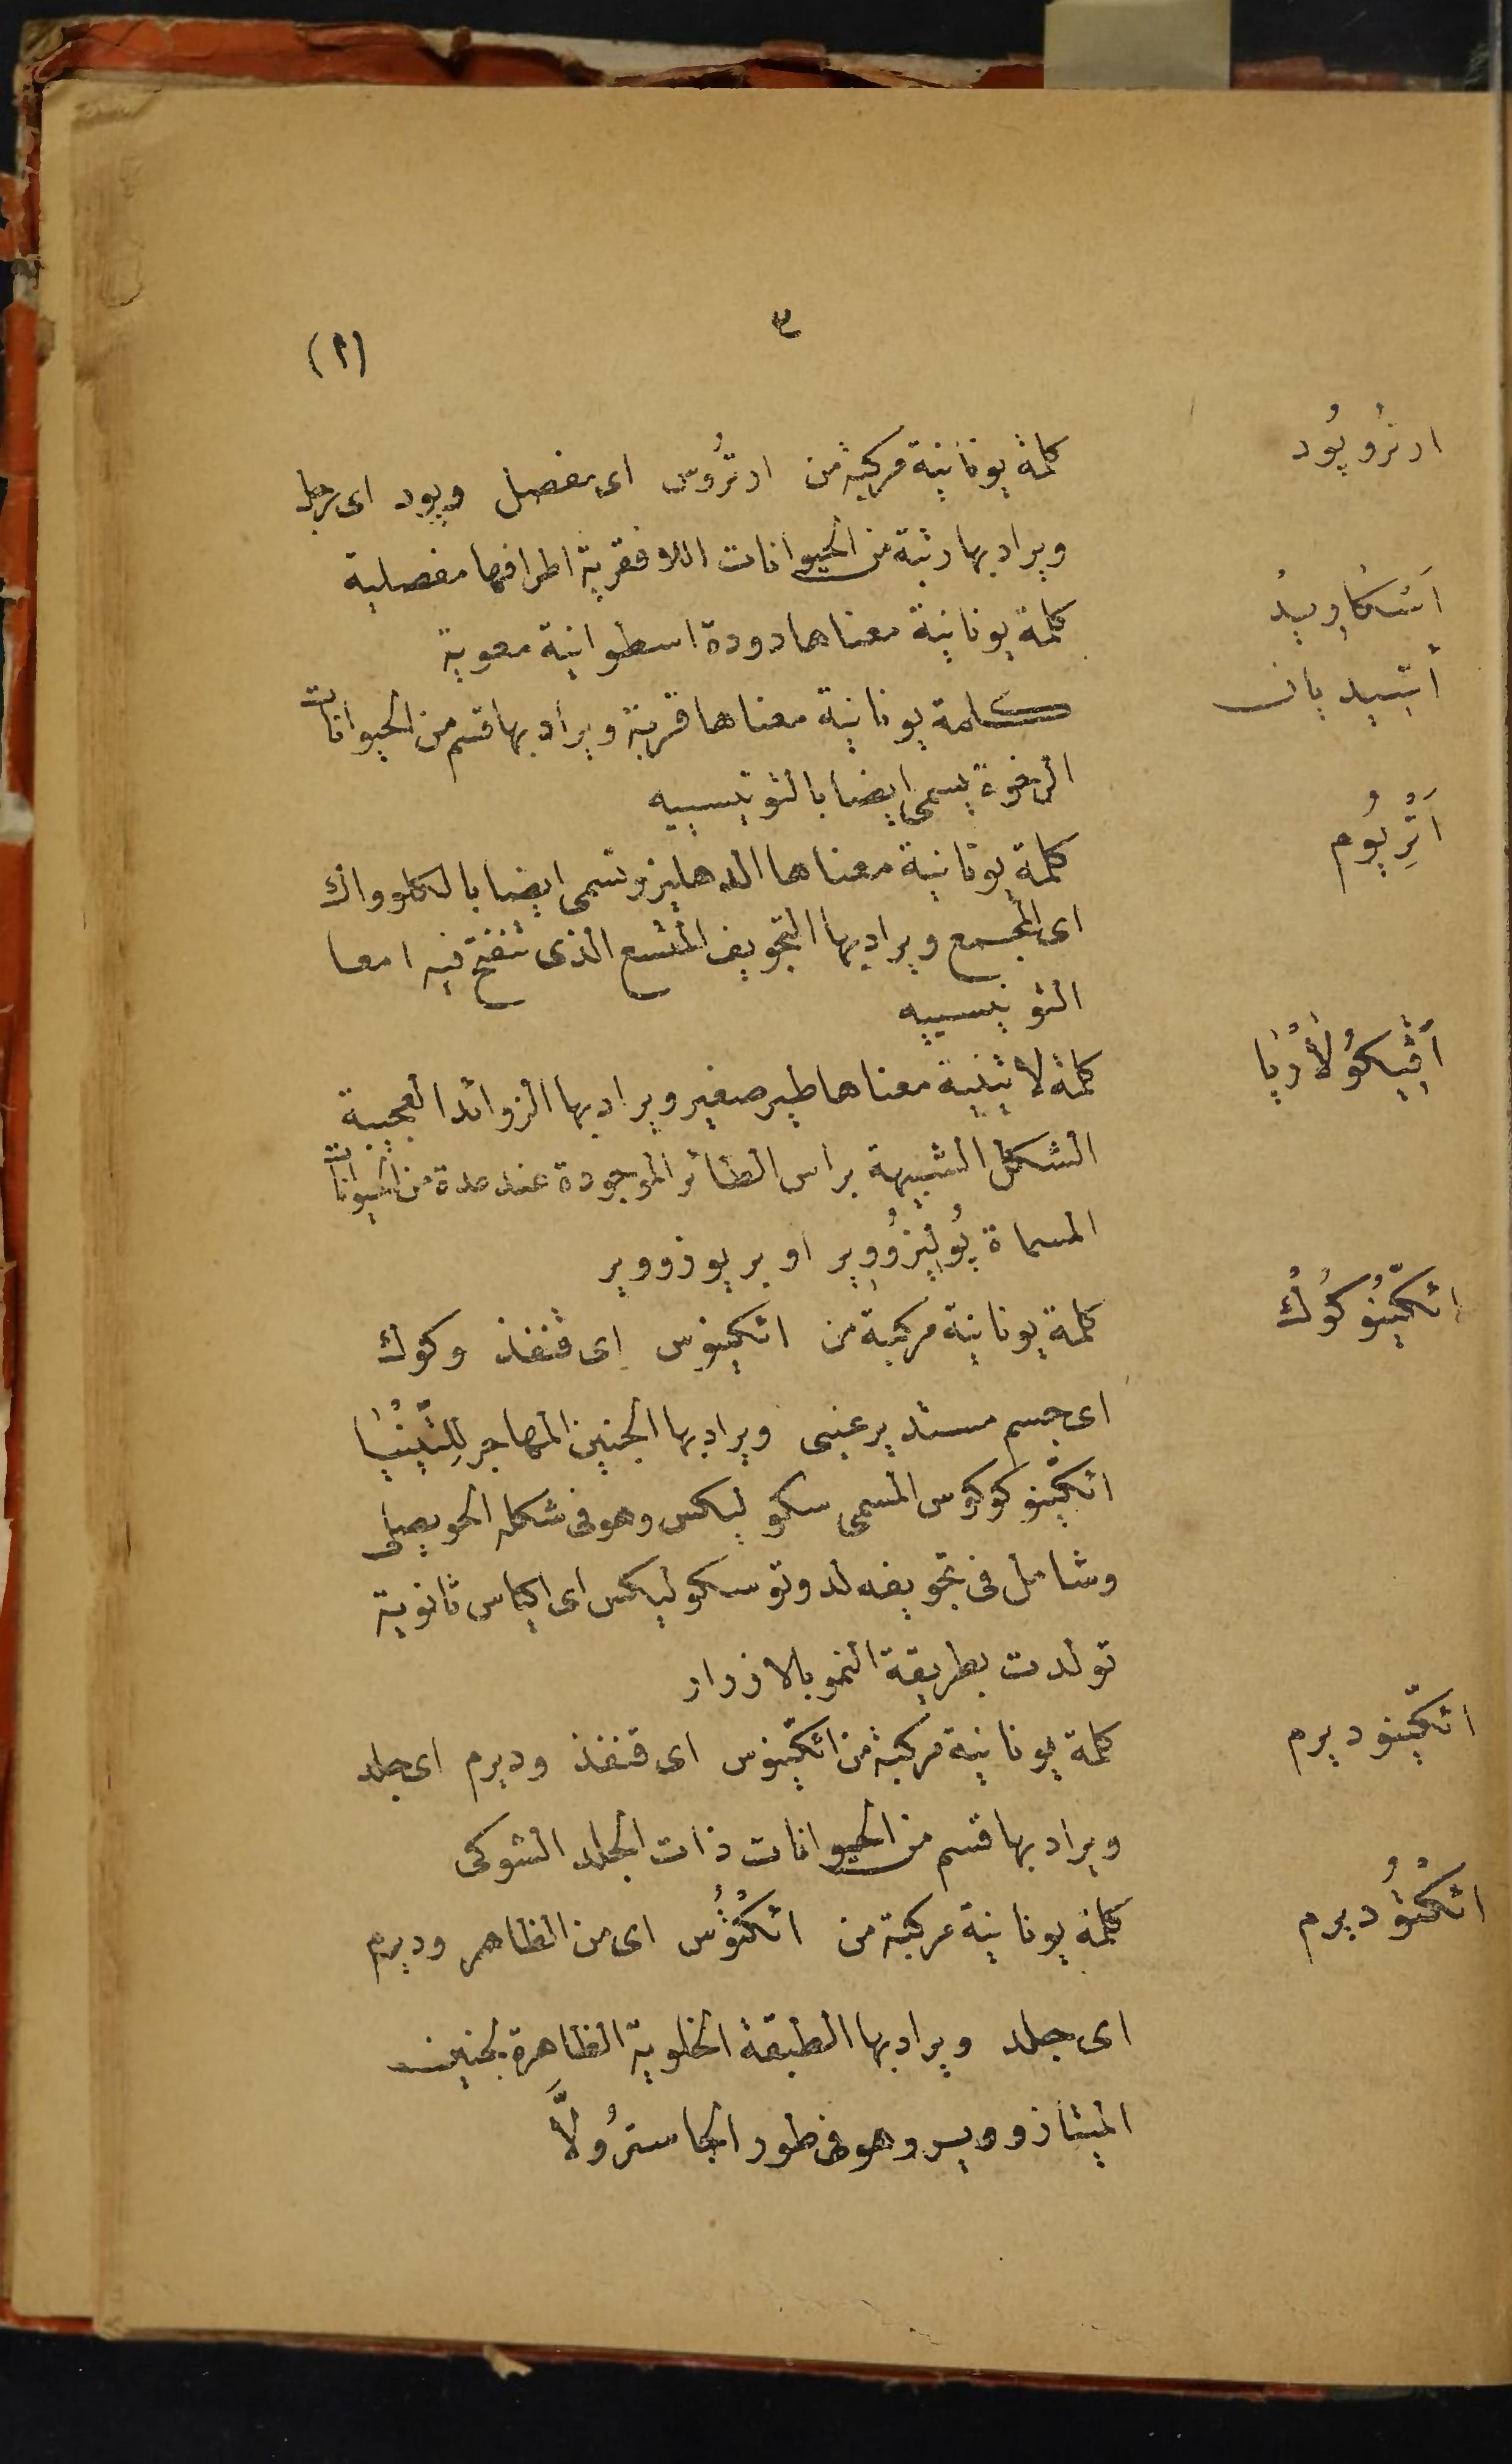 ٣
(١)
ارترُوپُود
كلمة يونانية مركبة من ارترُوس اى مفصل وپود اى رجل
ويراد بها رتبة من الحيوانات اللا فقرية اطرافها مفصلية
أَسْكَارِيدْ
كلمة يونانية معناها دودة اسطوانية معوية
أسيديان
كلمة يونانية معناها قربة ويراد بها قسم من الحيوانات
الرخوة يسمى ايضا بالتونيسيه
أَتْرِيُوم
كلمة يونانية معناها الدهليز وتسمى ايضا بالكلوواك
اى المجمع ويراد بها التجويف المتسع الذى تنفتح فيه امعا
التونيسييه
أَڤيكُولَارْيَا
كلمة لاتينية معناها طير صغير ويراد بها الزوائد العجيبة
الشكل الشبيهة براس الطائر الموجودة عند عدة من الحيوانات
المسماة پُوليزُووِير او بريوزووير
اتكّينُوكُوكْ
كلمة يونانية مركبة من اتكينوس اى قنفذ وكوك
اى جسم مستدير عنبى ويراد بها الجنين المهاجر لِلتّينْيَا
اتكّينوكوكوس المسمى سكوليكس وهو فى شكله الحويصلى
وشامل فى تجويفه لدوتوسكوليكس اى اكياس ثانوية
تولدت بطريقة النمو بالازرار
اتكّينوديرم
كلمة يونانية مركبة من اتكّينوس اى قنفذ وديرم اى جلد
ويراد بها قسم من الحيوانات ذات الجلد الشوكى
اتكْتُوديرم
كلمة يونانية مركبة من اتكْتُوُس اى من الظاهر وديرم
اى جلد ويراد بها الطبقة الخلوية الظاهرة لجنين
الميتازووير وهو فى طور الجاسترُولَّا